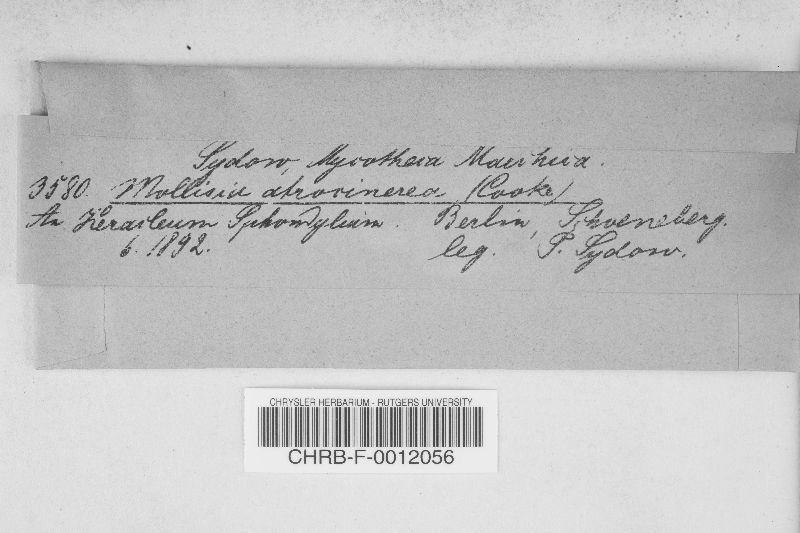 Sydow, Mycotheca Marchica.
3580. Mollisia atrocinerea (Cooke)
An Heracleum Sphondylium. Berlin, Schoeneberg.
6. 1892. leg. P. Sydow.
CHRYSLER HERBARIUM - RUTGERS UNIVERSITY
CHRB-F-0012056